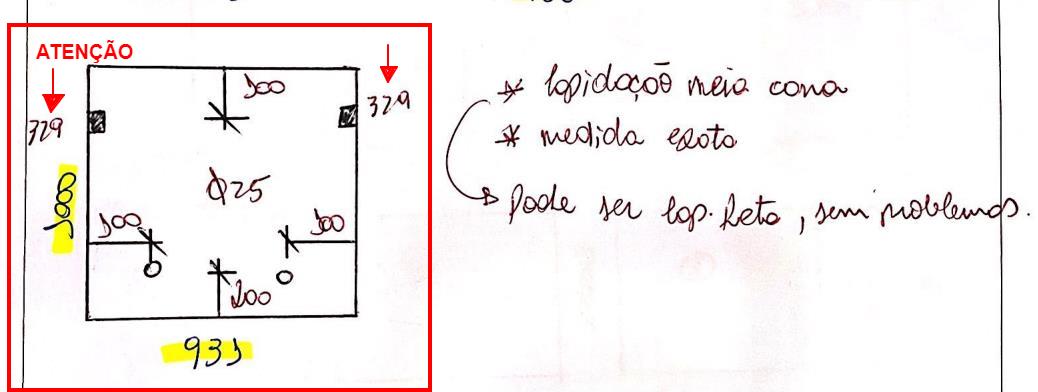 ATENÇÃO
329
100
329
* lapidação meia cana
* medida exata
→ Pode ser lap. Reta, sem problemas.
Φ25
1000
100
100
200
931